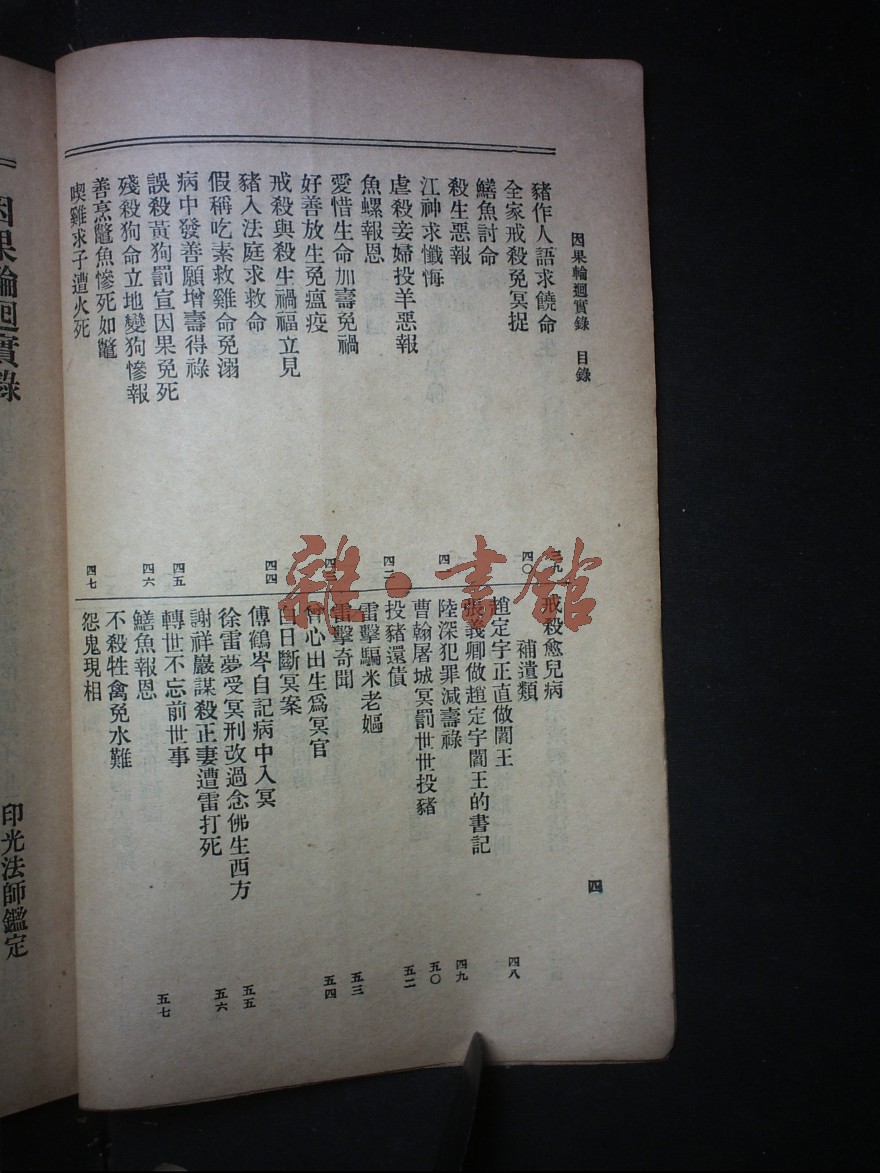 因果輪迴實錄　目錄
四
豬作人語求饒命　三九
全家戒殺免冥捉　四〇
鱔魚討命
殺生惡報　四一
江神求懺悔
虐殺妾婦投羊惡報　四二
魚螺報恩
愛惜生命加壽免禍
好善放生免瘟疫
戒殺與殺生禍福立見
豬入法庭求救命　四四
假稱吃素救雞命免溺
病中發善願增壽得祿
誤殺黃狗罰宣因果免死　四五
殘殺狗命立地變狗慘報　四六
善烹鼈魚慘死如鼈
喫雞求子遭火死　四七
戒殺愈兒病
補遺類
趙定宇正直做閻王　四八
張義卿做趙定宇閻王的書記
陸深犯罪減壽祿　四九
曹翰屠城冥罰世世投豬　五〇
投豬還債　五二
雷擊騙米老嫗
雷擊奇聞　五三
曾心出生爲冥官　五四
白日斷冥案
傅鶴岑自記病中入冥
徐雷夢受冥刑改過念佛生西方　五五
謝祥巖謀殺正妻遭雷打死　五六
轉世不忘前世事
鱔魚報恩　五七
不殺牲禽免水難
怨鬼現相
因果輪迴實錄
印光法師鑑定
雜·書館